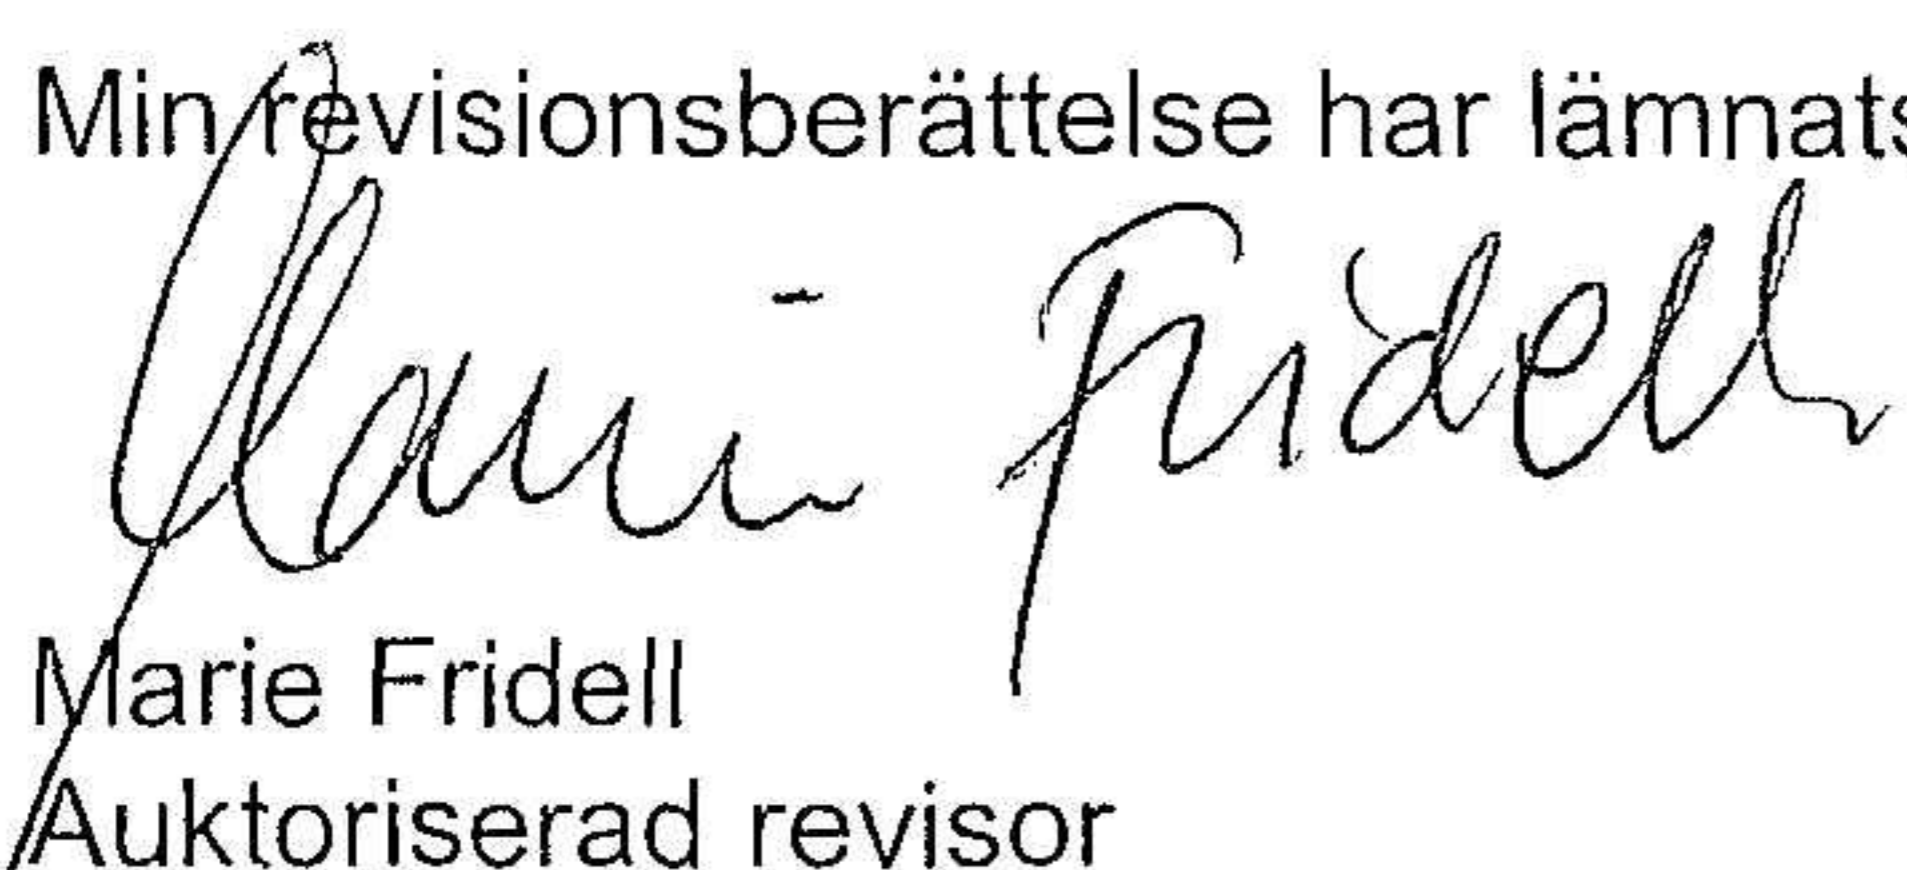 Min revisionsberättelse har lämnats
Marie Fridell
Marie Fridell
Auktoriserad revisor